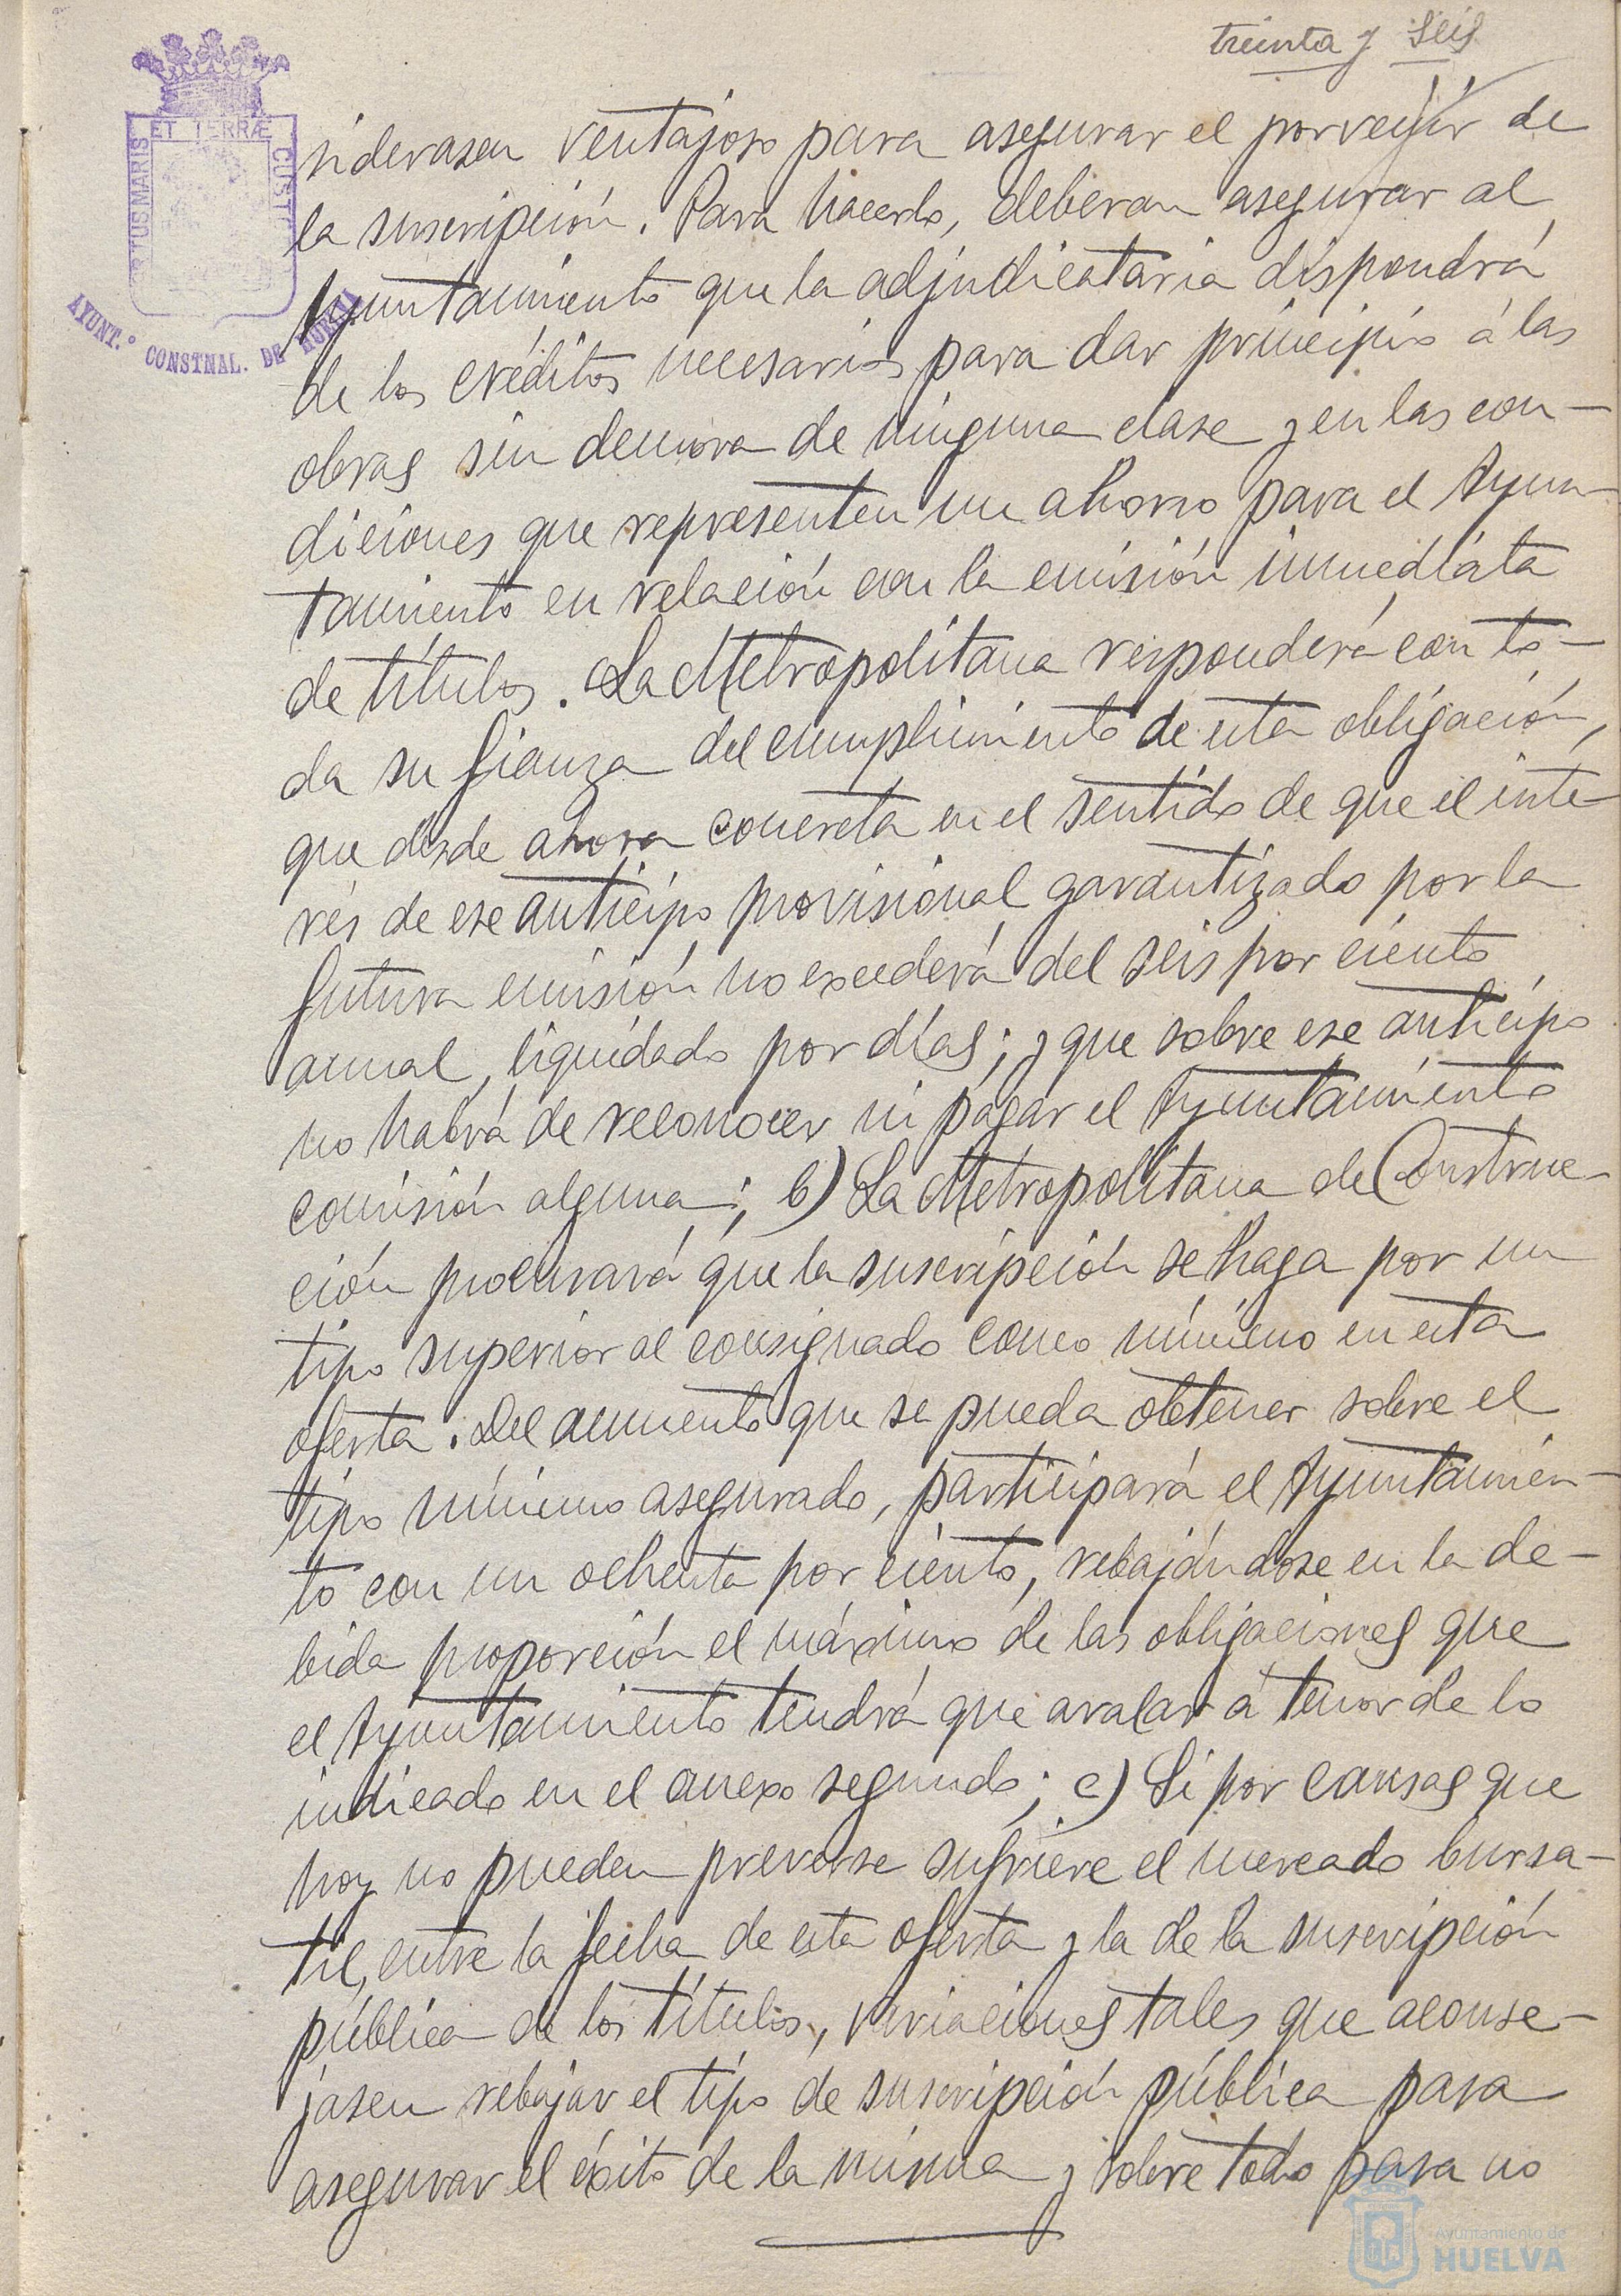 treinta y seis
siderasen ventajoso para asegurar el porvenir de
la suscripción. Para hacerlo, deberan asegurar al
Ayuntamiento que la adjudicataria dispondrá
de los créditos necesarios para dar principio á las
obras sin demora de ninguna clase y en las con-
diciones que representen un ahorro para el Ayun-
tamiento en relación con la emisión inmediata
de títulos. La Metropolitana responderá con to-
da su fianza del cumplimiento de esta obligación,
que desde ahora concreta en el sentido de que el inte-
rés de ese anticipo provisional garantizado por la
futura emisión no excederá del seis por ciento
anual, liquidado por días; y que sobre ese anticipo
no habrá de reconocer ni pagar el Ayuntamiento
comisión alguna; b) La Metropolitana de Construc-
ción procurará que la suscripción se haga por un
tipo superior al consignado como mínimo en esta
oferta. Del aumento que se pueda obtener sobre el
tipo mínimo asegurado, participará el Ayuntamien-
to con un ochenta por ciento, rebajándose en la de-
bida proporción el máximo de las obligaciones que
el Ayuntamiento tendrá que avalar á tenor de lo
indicado en el anexo segundo; c) Si por causas que
hoy no pueden preverse sufriere el mercado bursa-
til, entre la fecha de esta oferta y la de la suscripción
pública de los títulos, variaciones tales que aconse-
jasen rebajar el tipo de suscripción pública para
asegurar el éxito de la misma y sobre todo para no
ET TERRÆ
CUST
PORTUS MARIS
AYUNT.º CONSTNAL. DE HUELVA
Ayuntamiento de
HUELVA